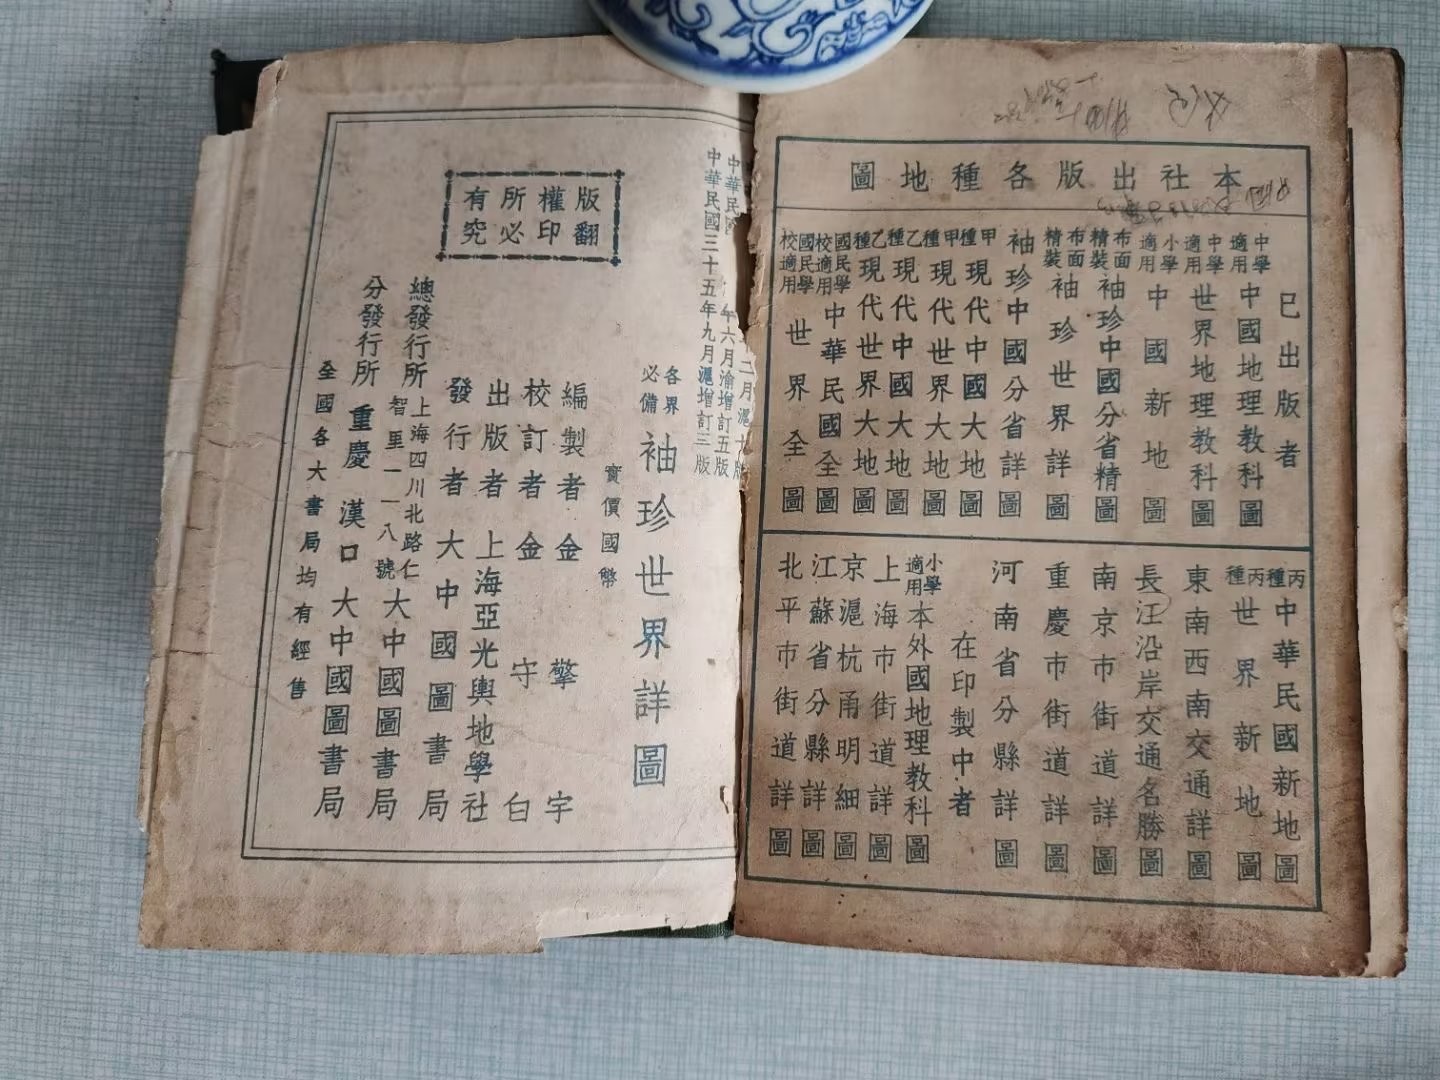 本社出版各種地圖
已出版者
中學適用 中國地理教科圖
中學適用 世界地理教科圖
小學適用 中國新地圖
布面精裝 袖珍中國分省精圖
布面精裝 袖珍世界詳圖
袖珍中國分省詳圖
甲種 現代中國大地圖
甲種 現代世界大地圖
乙種 現代中國大地圖
乙種 現代世界大地圖
國民學校適用 中華民國全圖
國民學校適用 世界全圖
丙種 中華民國新地圖
丙種 世界新地圖
東南西南交通詳圖
長江沿岸交通名勝圖
南京市街道詳圖
重慶市街道詳圖
河南省分縣詳圖
在印製中者
小學適用 本外國地理教科圖
上海市街道詳圖
京滬杭甬明細圖
江蘇省分縣詳圖
北平市街道詳圖
二月滬十版
中華民國
年六月渝增訂五版
中華民國三十五年九月滬增訂三版
各界必備 袖珍世界詳圖
實價國幣
編製者 金擎宇
校訂者 金守白
出版者 上海亞光輿地學社
發行者 大中國圖書局
總發行所 上海四川北路仁智里一一八號 大中國圖書局
分發行所 重慶 漢口 大中國圖書局
全國各大書局均有經售
版權所有
翻印必究